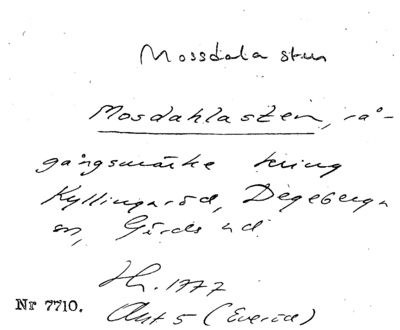 Mossdala sten
Mosdahlasten, rå-
gångsmärke kring
Kyllingaröd, Degeberga
sn, Gärds hd
Hr. 1777
Akt 5 (Everöd)
Nr 7710.